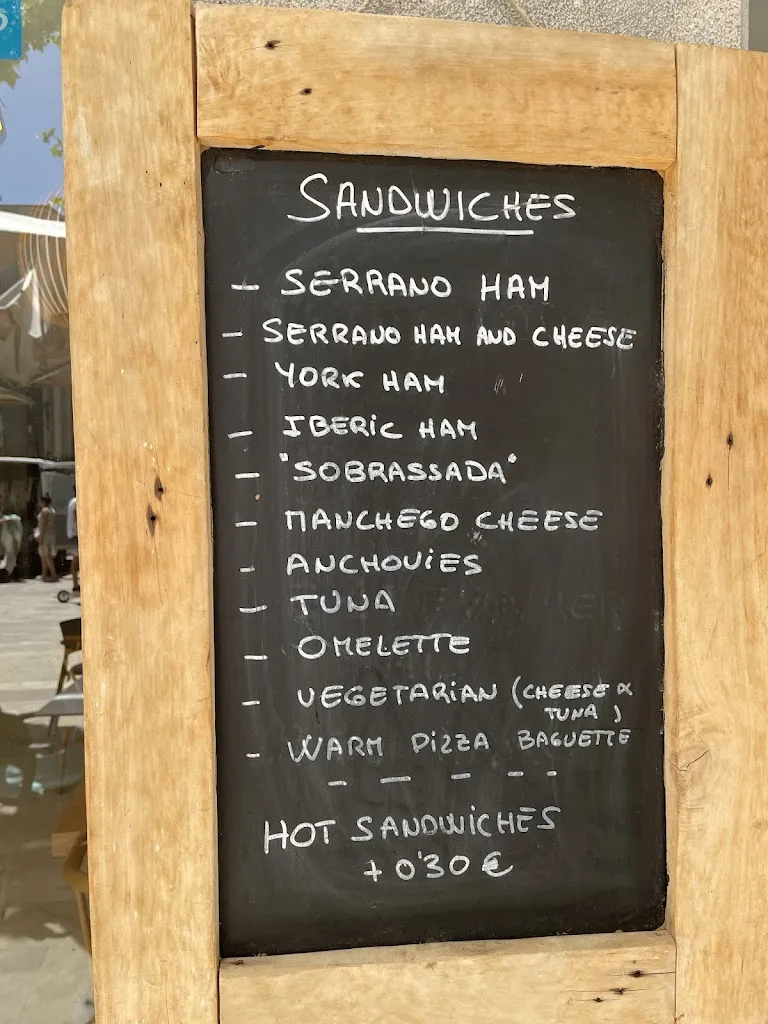 SANDWICHES
- SERRANO HAM
- SERRANO HAM AND CHEESE
- YORK HAM
- IBERIC HAM
- "SOBRASSADA"
- MANCHEGO CHEESE
- ANCHOVIES
- TUNA
- OMELETTE
- VEGETARIAN (CHEESE &
TUNA)
- WARM PIZZA BAGUETTE
- - - - -
HOT SANDWICHES
+ 0'30 €